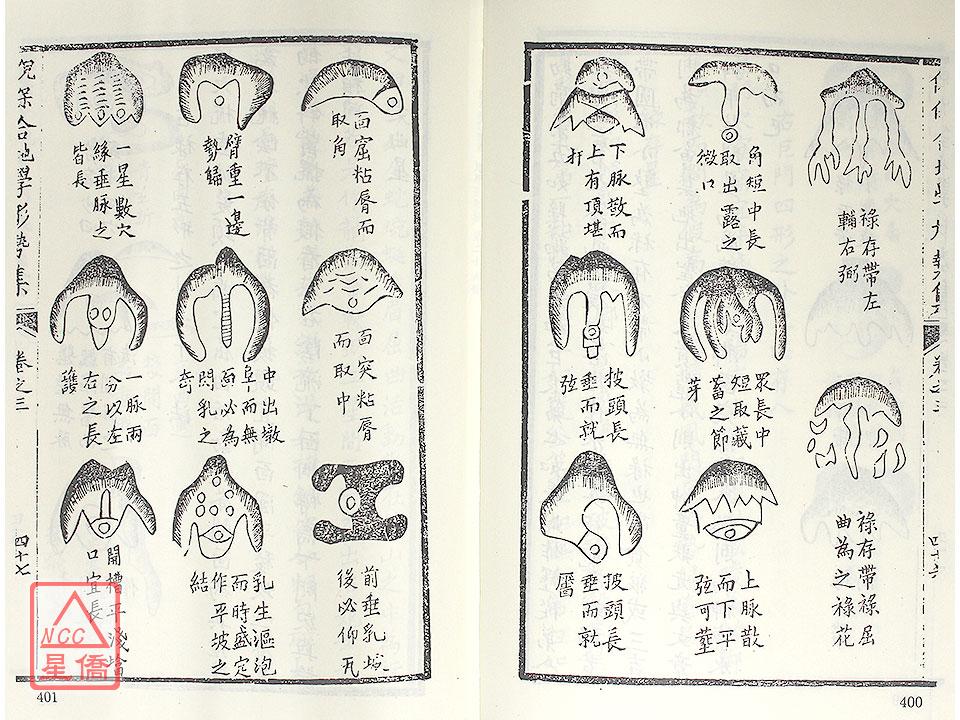 祿存帶左
輔右弼
祿存帶祿屈
曲為之祿花
角短中長
取出露之
微口
眾長中
短取藏
蓄之節
芽
上脉散
而下平
弦可塟
下脉散而
上有頂堪
打
披頭長
垂而就
弦
披頭長
垂而就
唇
卷之三
四十六
400
面窟粘唇而
取角
面突粘唇
而取中
前垂乳
後必仰瓦
臂重一邊
勢歸
中出墩
阜而無
面必為
悶乳之
奇
乳生漚泡
而時盛定
作平坡之
結
一星數穴
緣垂脉之
皆長
一脉兩
分以左
右之長
護
開槽平淺
口宜長
合地學形勢集
卷之三
四十七
401
NCC
星僑